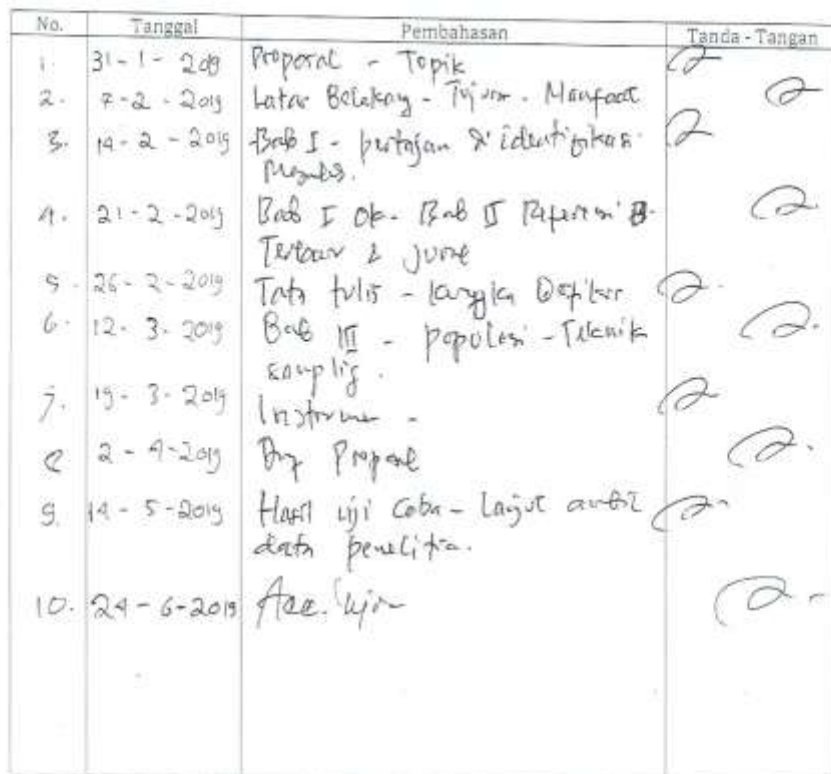 No. Tanggal Pembahasan Tanda - Tangan
1. 31 - 1 - 2019 Proposal - Topik
2. 7 - 2 - 2019 Latar Belakang - Tujuan - Manfaat
3. 14 - 2 - 2019 Bab I - & identifikasi
4. 21 - 2 - 2019 Bab I Ok - Bab II Referensi
&
5. 26 - 2 - 2019 Tata tulis -
6. 12 - 3 - 2019 Bab III - populasi - Teknik
samplig.
7. 19 - 3 - 2019 Instrumen -
8 2 - 4 - 2019 Proposal
9. 14 - 5 - 2019 Hasil uji Coba - Lanjut ambil
data penelitia.
10. 24 - 6 - 2019 Acc. Ujian